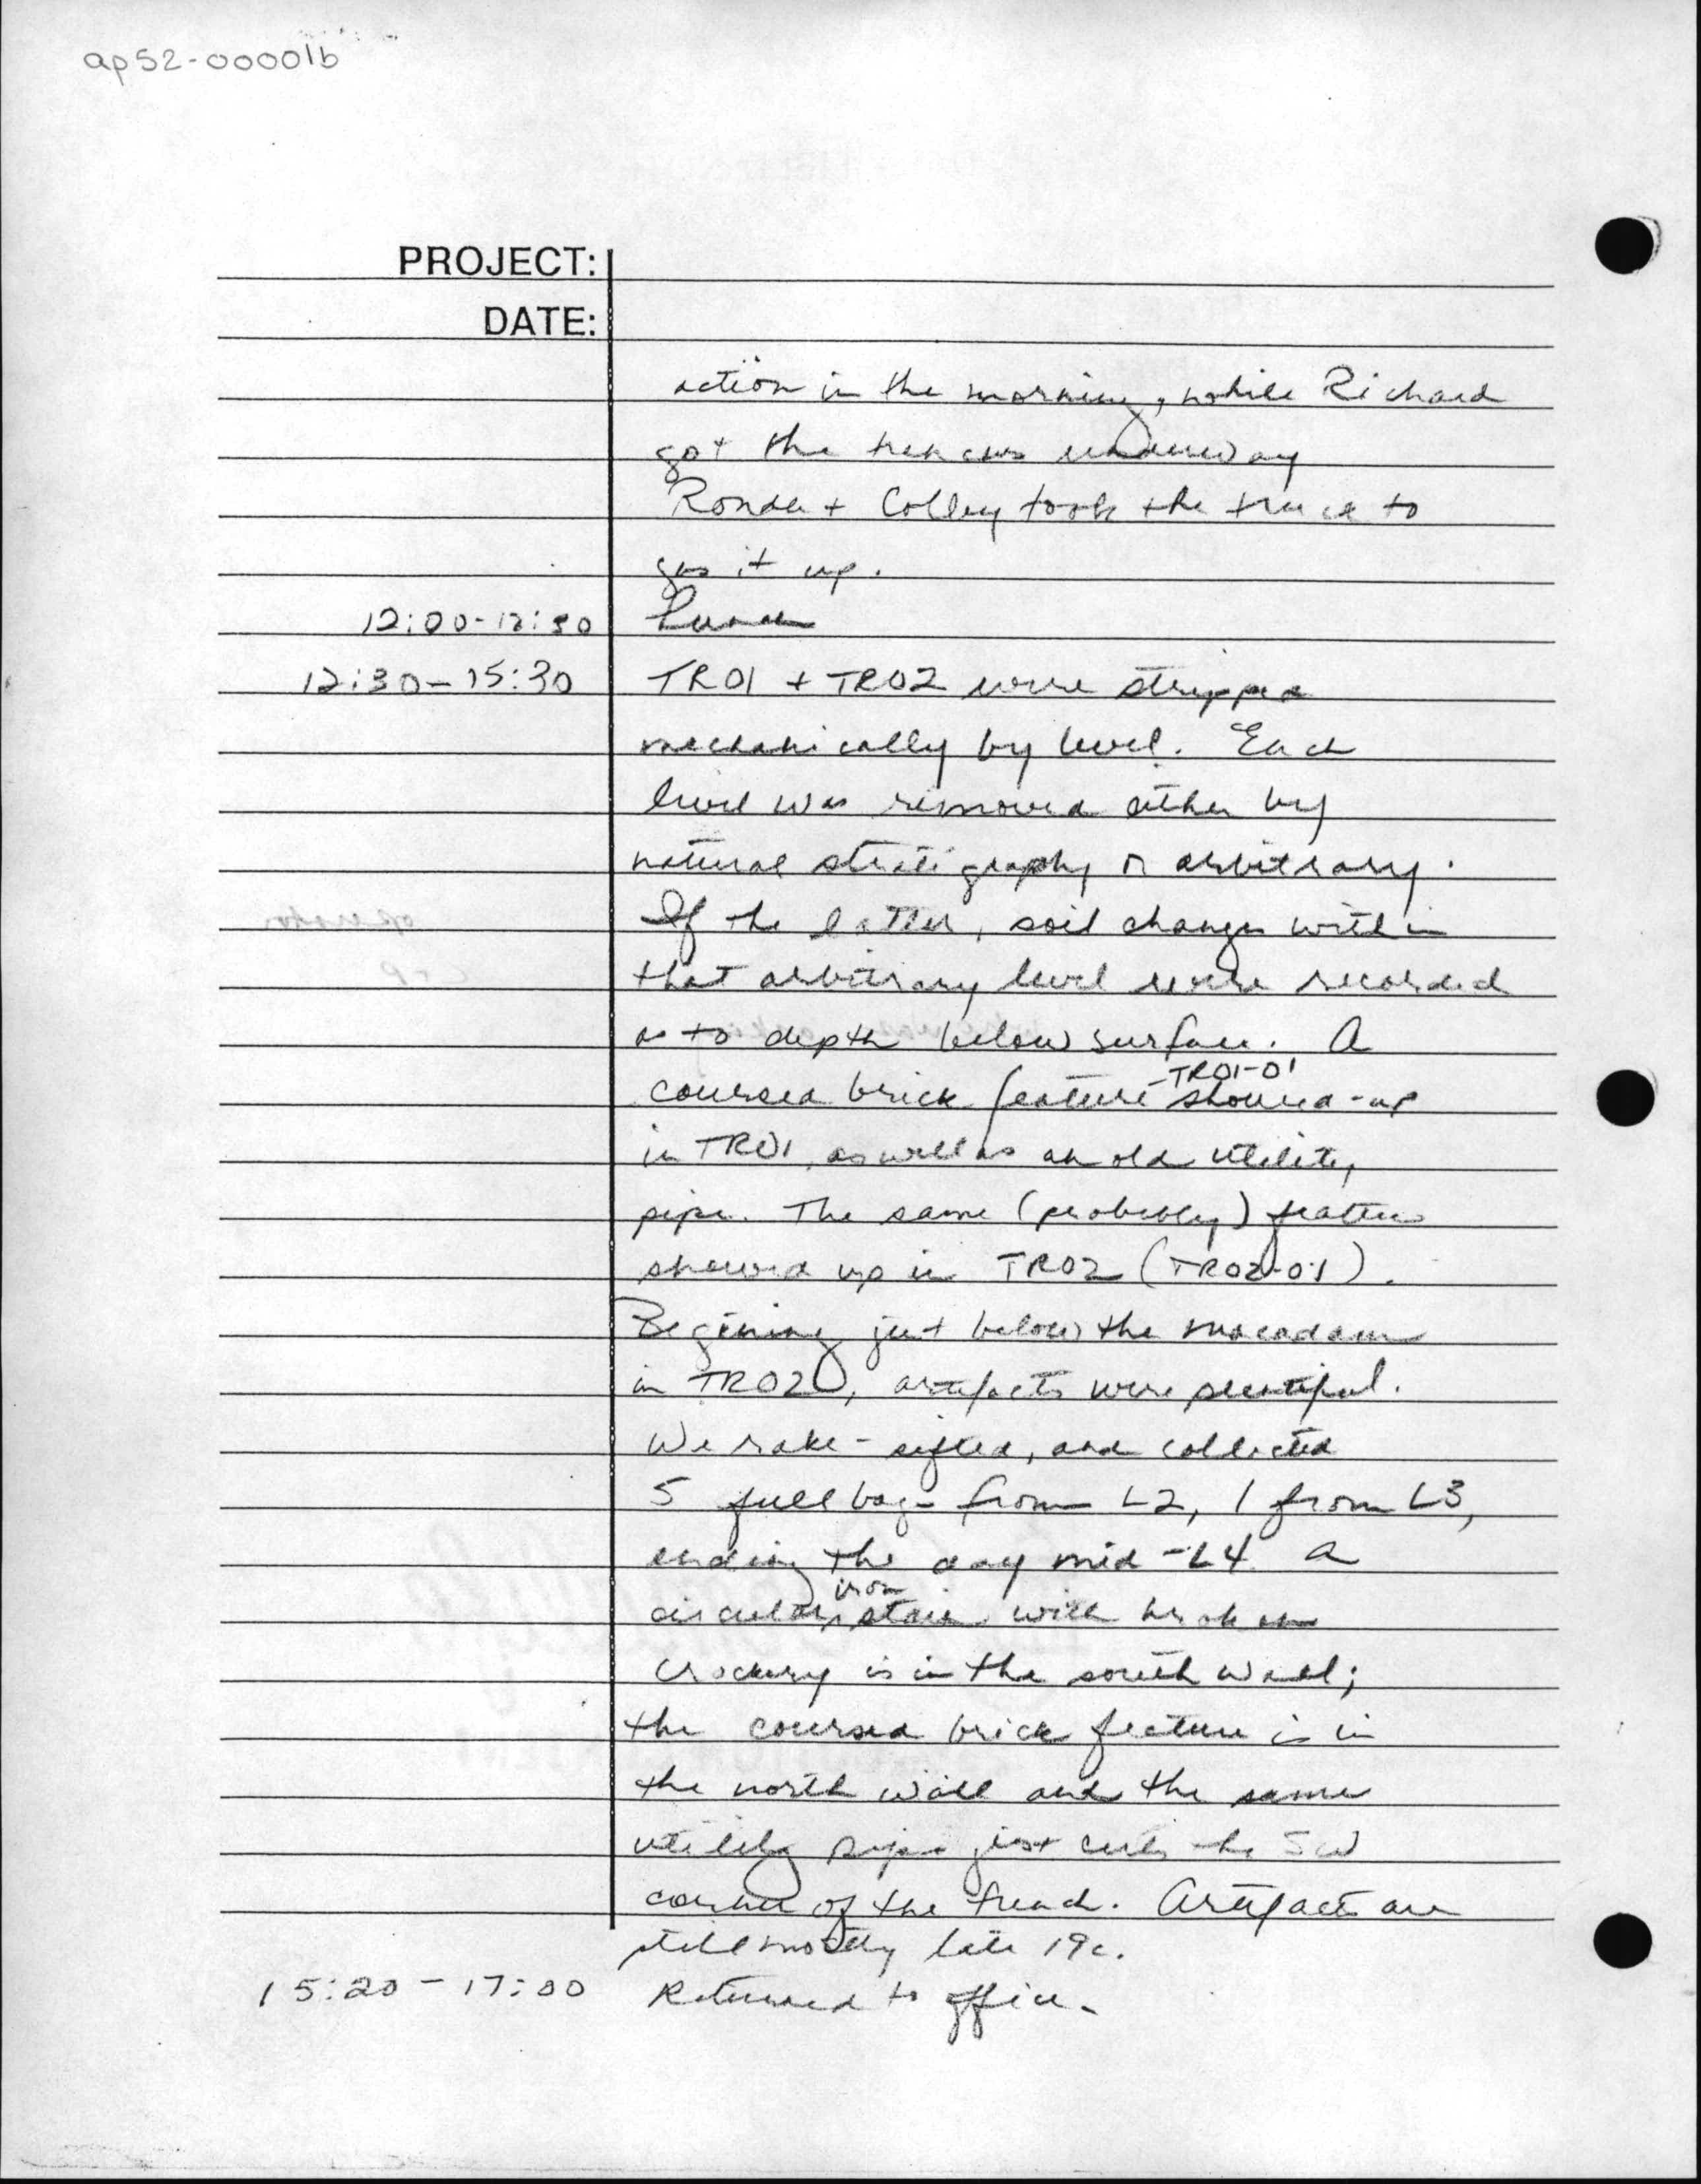 ap52-00001b
PROJECT:
DATE:
action in the morning, while Richard
got the trenches underway
Ronda + Colley took the truck to
gas it up.
12:00-12:30 Lunch
12:30-15:30 TR01 + TR02 were stripped
mechanically by level. Each
level was removed either by
natural stratigraphy or arbitrary.
If the latter, soil changes within
that arbitrary level were recorded
as to depth below surface. A
TR01-01
coursed brick feature showed-up
in TR01, as well as an old utility
pipe. The same (probably) feature
showed up in TR02 (TR02-01).
Begining just below the macadam
in TR02, artifacts were plentiful.
We rake-sifted, and collected
5 full bags from L2, 1 from L3,
ending the day mid-L4. A
iron
circular stain with broken
crockery is in the south wall;
the coursed brick feature is in
the north wall and the same
utility pipe just cuts the SW
corner of the trench. Artifacts are
still mostly late 19c.
15:20-17:00 Returned to office.